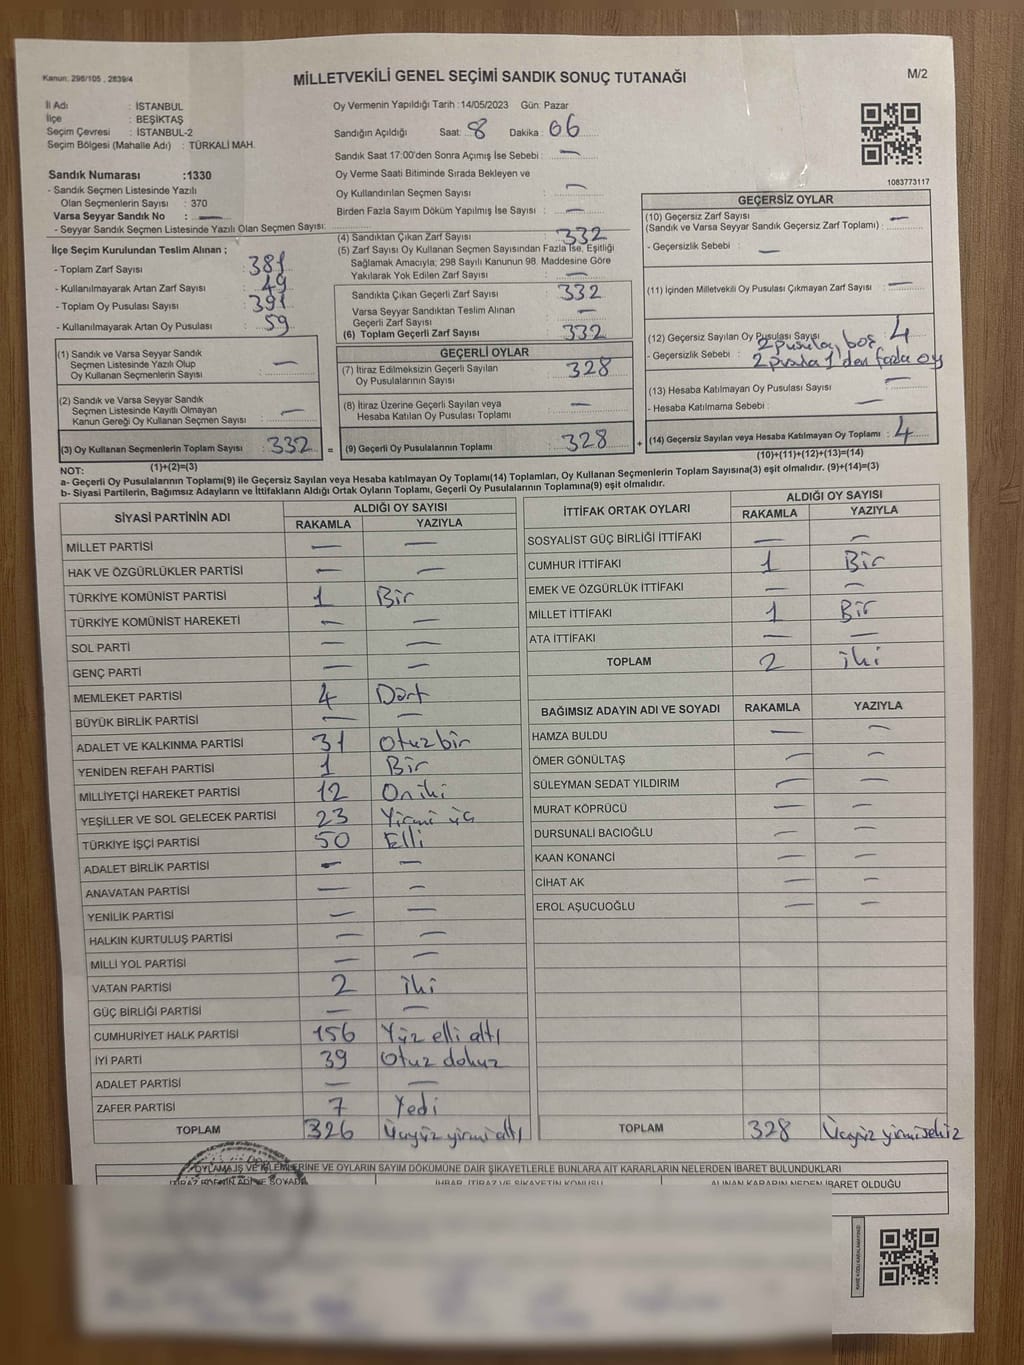 Kanun: 298/105 , 2839/4
MİLLETVEKİLİ GENEL SEÇİMİ SANDIK SONUÇ TUTANAĞI
M/2
İl Adı : İSTANBUL
İlçe : BEŞİKTAŞ
Seçim Çevresi : İSTANBUL-2
Seçim Bölgesi (Mahalle Adı) : TÜRKALİ MAH.
Sandık Numarası :1330
- Sandık Seçmen Listesinde Yazılı
Olan Seçmenlerin Sayısı : 370
Varsa Seyyar Sandık No : —
- Seyyar Sandık Seçmen Listesinde Yazılı Olan Seçmen Sayısı:
Oy Vermenin Yapıldığı Tarih : 14/05/2023 Gün: Pazar
Sandığın Açıldığı Saat: 8 Dakika : 06
Sandık Saat 17:00'den Sonra Açımış İse Sebebi : —
Oy Verme Saati Bitiminde Sırada Bekleyen ve
Oy Kullandırılan Seçmen Sayısı : —
Birden Fazla Sayım Döküm Yapılmış İse Sayısı : —
1083773117
İlçe Seçim Kurulundan Teslim Alınan ;
- Toplam Zarf Sayısı : 381
- Kullanılmayarak Artan Zarf Sayısı : 49
- Toplam Oy Pusulası Sayısı : 391
- Kullanılmayarak Artan Oy Pusulası : 59
(1) Sandık ve Varsa Seyyar Sandık
Seçmen Listesinde Yazılı Olup
Oy Kullanan Seçmenlerin Sayısı —
(2) Sandık ve Varsa Seyyar Sandık
Seçmen Listesinde Kayıtlı Olmayan
Kanun Gereği Oy Kullanan Seçmen Sayısı —
(3) Oy Kullanan Seçmenlerin Toplam Sayısı 332 =
(1)+(2)=(3)
(4) Sandıktan Çıkan Zarf Sayısı : 332
(5) Zarf Sayısı Oy Kullanan Seçmen Sayısından Fazla İse, Eşitliği
Sağlamak Amacıyla; 298 Sayılı Kanunun 98. Maddesine Göre
Yakılarak Yok Edilen Zarf Sayısı : —
Sandıkta Çıkan Geçerli Zarf Sayısı : 332
Varsa Seyyar Sandıktan Teslim Alınan
Geçerli Zarf Sayısı : —
(6) Toplam Geçerli Zarf Sayısı : 332
GEÇERLİ OYLAR
(7) İtiraz Edilmeksizin Geçerli Sayılan
Oy Pusulalarının Sayısı : 328
(8) İtiraz Üzerine Geçerli Sayılan veya
Hesaba Katılan Oy Pusulası Toplamı : —
(9) Geçerli Oy Pusulalarının Toplamı : 328 +
GEÇERSİZ OYLAR
(10) Geçersiz Zarf Sayısı
(Sandık ve Varsa Seyyar Sandık Geçersiz Zarf Toplamı) : —
- Geçersizlik Sebebi : —
(11) İçinden Milletvekili Oy Pusulası Çıkmayan Zarf Sayısı : —
(12) Geçersiz Sayılan Oy Pusulası Sayısı : 4
2 pusula, boş,
- Geçersizlik Sebebi : 2 pusula 1'den fazla oy
(13) Hesaba Katılmayan Oy Pusulası Sayısı : —
- Hesaba Katılmama Sebebi : —
(14) Geçersiz Sayılan veya Hesaba Katılmayan Oy Toplamı : 4
(10)+(11)+(12)+(13)=(14)
NOT:
a- Geçerli Oy Pusulalarının Toplamı(9) ile Geçersiz Sayılan veya Hesaba katılmayan Oy Toplamı(14) Toplamları, Oy Kullanan Seçmenlerin Toplam Sayısına(3) eşit olmalıdır. (9)+(14)=(3)
b- Siyasi Partilerin, Bağımsız Adayların ve İttifakların Aldığı Ortak Oyların Toplamı, Geçerli Oy Pusulalarının Toplamına(9) eşit olmalıdır.
SİYASİ PARTİNİN ADI ALDIĞI OY SAYISI
RAKAMLA YAZIYLA
MİLLET PARTİSİ — —
HAK VE ÖZGÜRLÜKLER PARTİSİ — —
TÜRKİYE KOMÜNİST PARTİSİ 1 Bir
TÜRKİYE KOMÜNİST HAREKETİ — —
SOL PARTİ — —
GENÇ PARTİ — —
MEMLEKET PARTİSİ 4 Dört
BÜYÜK BİRLİK PARTİSİ — —
ADALET VE KALKINMA PARTİSİ 31 Otuzbir
YENİDEN REFAH PARTİSİ 1 Bir
MİLLİYETÇİ HAREKET PARTİSİ 12 Oniki
YEŞİLLER VE SOL GELECEK PARTİSİ 23 Yirmi üç
TÜRKİYE İŞÇİ PARTİSİ 50 Elli
ADALET BİRLİK PARTİSİ — —
ANAVATAN PARTİSİ — —
YENİLİK PARTİSİ — —
HALKIN KURTULUŞ PARTİSİ — —
MİLLİ YOL PARTİSİ — —
VATAN PARTİSİ 2 iki
GÜÇ BİRLİĞİ PARTİSİ — —
CUMHURİYET HALK PARTİSİ 156 Yüz elli altı
İYİ PARTİ 39 Otuz dokuz
ADALET PARTİSİ — —
ZAFER PARTİSİ 7 Yedi
TOPLAM 326 Üçyüz yirmi altı
İTTİFAK ORTAK OYLARI ALDIĞI OY SAYISI
RAKAMLA YAZIYLA
SOSYALİST GÜÇ BİRLİĞİ İTTİFAKI — —
CUMHUR İTTİFAKI 1 Bir
EMEK VE ÖZGÜRLÜK İTTİFAKI — —
MİLLET İTTİFAKI 1 Bir
ATA İTTİFAKI — —
TOPLAM 2 iki
BAĞIMSIZ ADAYIN ADI VE SOYADI RAKAMLA YAZIYLA
HAMZA BULDU — —
ÖMER GÖNÜLTAŞ — —
SÜLEYMAN SEDAT YILDIRIM — —
MURAT KÖPRÜCÜ — —
DURSUNALİ BACIOĞLU — —
KAAN KONANCİ — —
CİHAT AK — —
EROL AŞUCUOĞLU — —
TOPLAM 328 Üçyüz yirmisekiz
OYLAMA İŞ VE İŞLEMLERİNE VE OYLARIN SAYIM DÖKÜMÜNE DAİR ŞİKAYETLERLE BUNLARA AİT KARARLARIN NELERDEN İBARET BULUNDUKLARI
İTİRAZ EDENİN ADI VE SOYADI İHBAR, İTİRAZ VE ŞİKAYETİN KONUSU ALINAN KARARIN NEDEN İBARET OLDUĞU